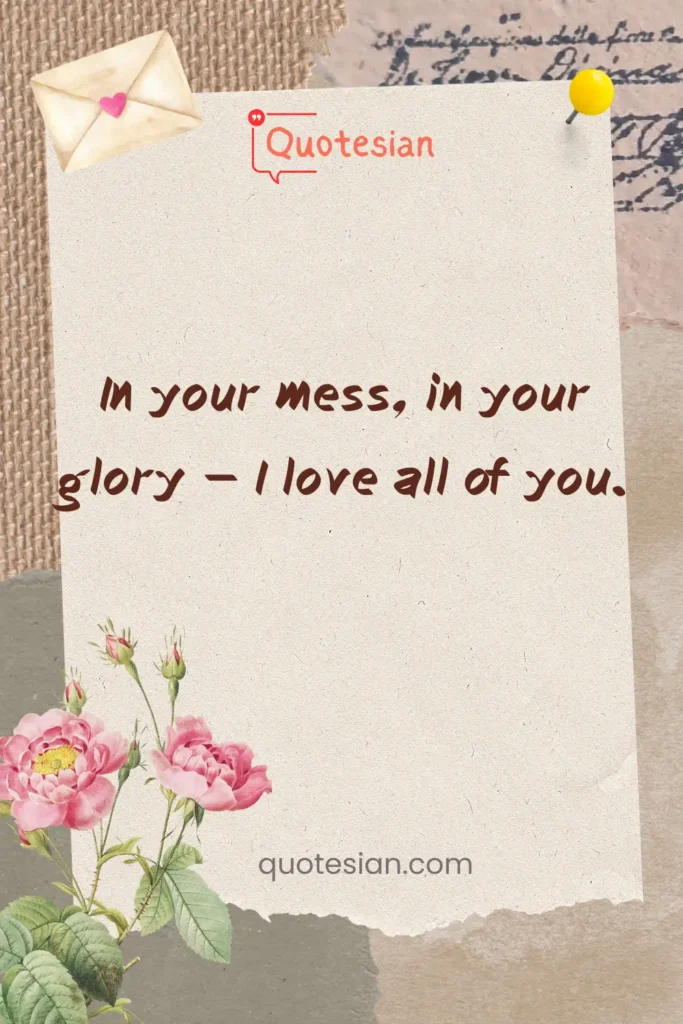 Quotesian
In your mess, in your
glory – I love all of you.
quotesian.com